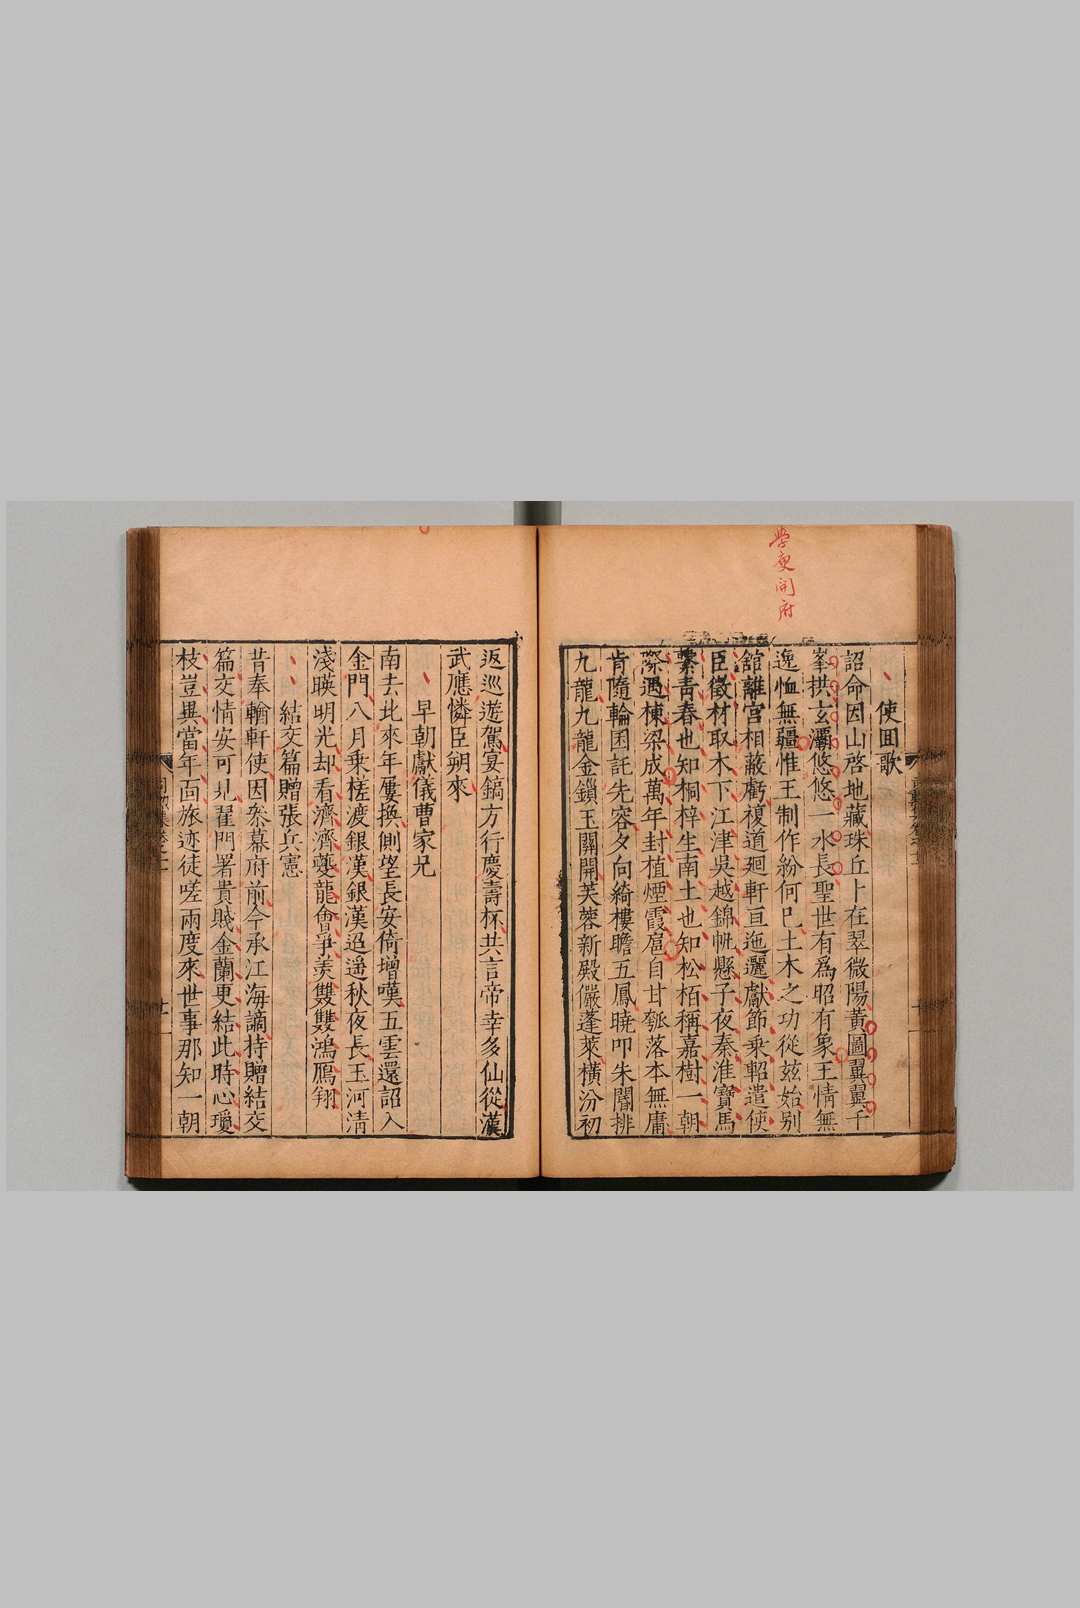 學庾開府
使回歌
詔命因山啓地藏珠丘卜在翠微陽黃圖翼翼千
峯拱玄灞悠悠一水長聖世有爲昭有象王情無
逸恤無疆惟王制作紛何巳土木之功從兹始別
舘離宮相蔽虧複道廻軒亘迤邐獻節乗軺遣使
臣徵材取木下江津吳越錦帆懸子夜秦淮寶馬
繫青春也知桐梓生南土也知松栢稱嘉樹一朝
際遇棟梁成萬年封植煙霞扈自甘瓠落本無庸
肯隨輪囷託先容夕向綺樓瞻五鳳曉叩朱闇排
九龍九龍金鎖玉關開芙蓉新殿儼蓬萊橫汾初
返巡遊駕宴鎬方行慶壽杯共言帝幸多仙從漢
武應憐臣朔來
早朝獻儀曹家兄
南去北來年屢換側望長安倚增嘆五雲還詔入
金門八月乗槎渡銀漢銀漢迢遥秋夜長玉河清
淺暎明光却看濟濟夔龍會爭羨雙雙鴻鴈翔
結交篇贈張兵憲
昔奉輶軒使因叅幕府前今承江海謫持贈結交
篇交情安可見翟門署貴賎金蘭更結此時心瓊
枝豈異當年面旅迹徒嗟兩度來世事那知一朝